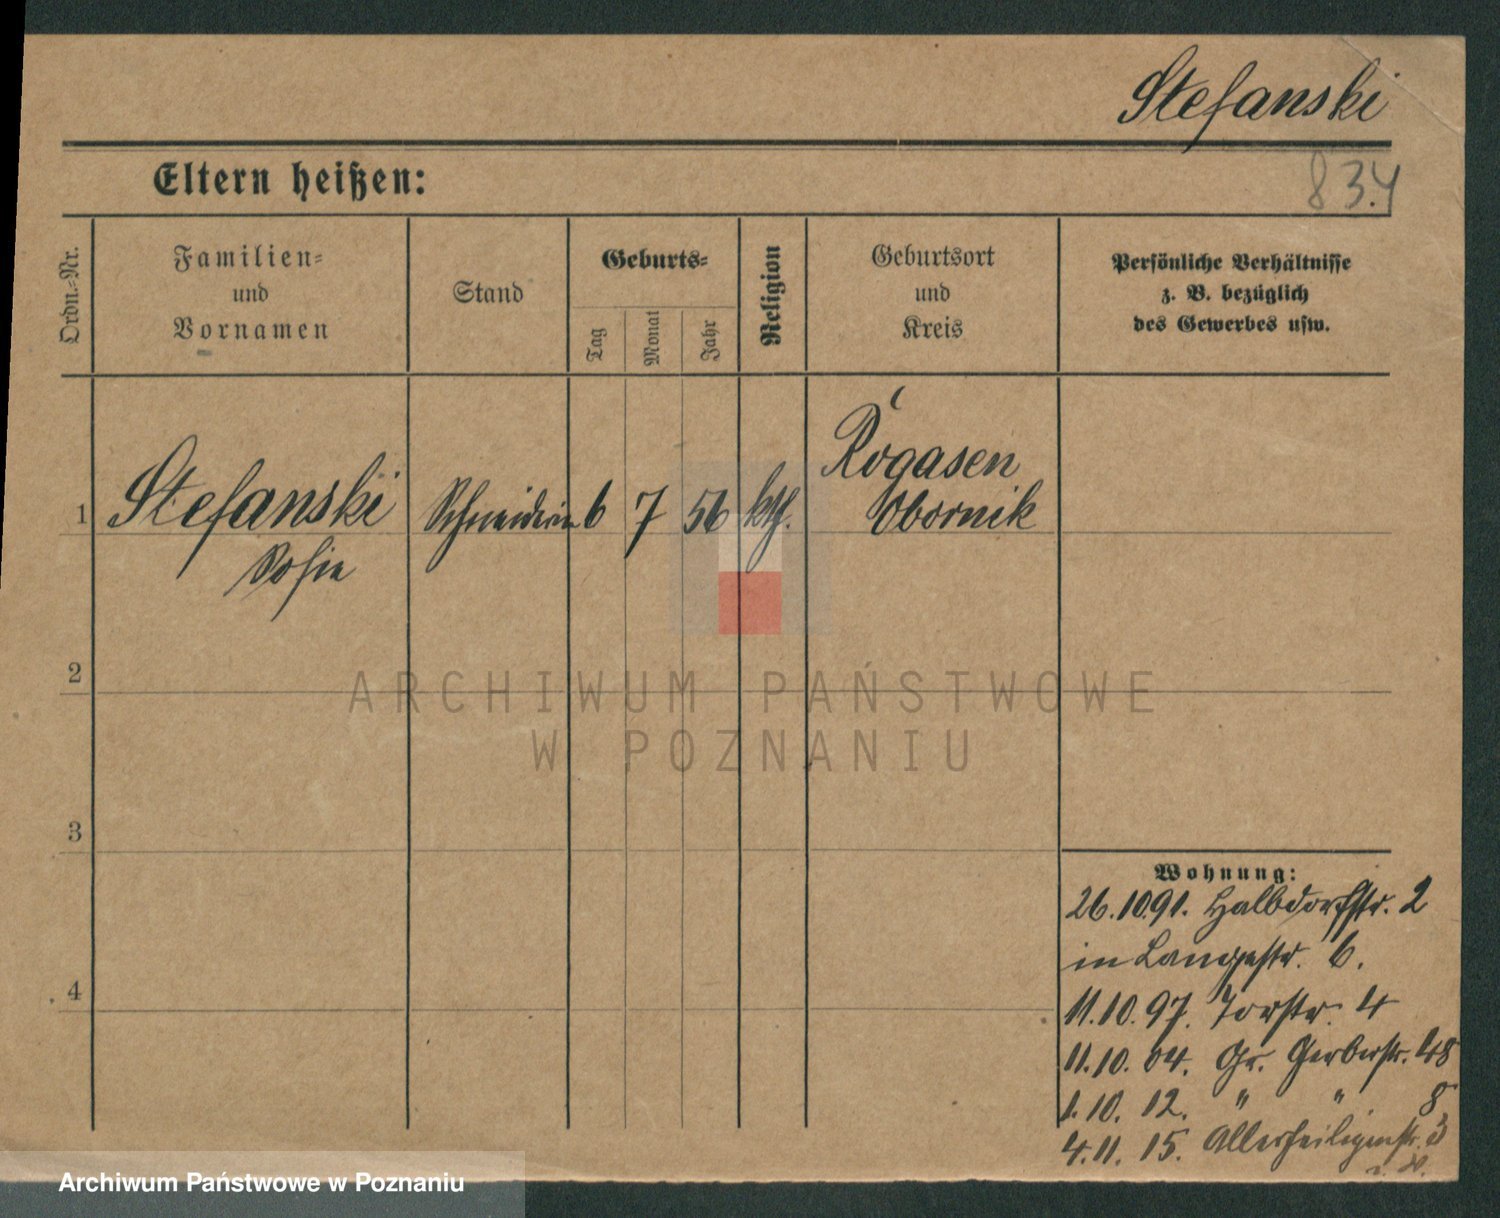 Stefanski
834
Eltern heißen:
Ordn.-Nr.
Familien-
und
Vornamen
Stand
Geburts-
Tag
Monat
Jahr
Religion
Geburtsort
und
Kreis
Persönliche Verhältnisse
z. B. bezüglich
des Gewerbes usw.
1
Stefanski
Sofie
Schneiderin
6 7 56
kth.
Rogasen
Obornik
2
ARCHIWUM PAŃSTWOWE
W POZNANIU
3
4
Wohnung:
26.10.91. Halbdorfstr. 2
in Langestr. 6.
11.10.97. Torstr. 4
11.10.04. Gr. Gerberstr. 48
1.10.12. " " 8
4.11.15. Allerheiligenstr. 3
Archiwum Państwowe w Poznaniu